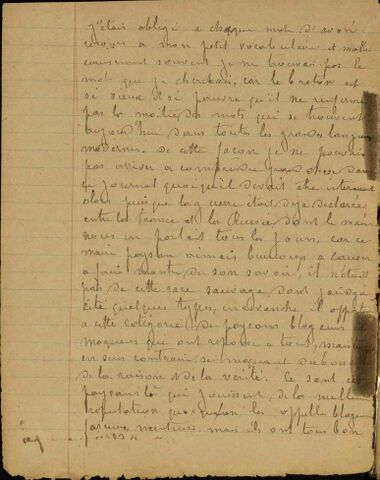 j'étais obligé a chaque mot d'avoir
recours a mon petit vocabulaire et malh
eureusement souvent je ne trouvais pas le
mot que je cherchais, car le breton est
si vieux et si pauvre qu'il ne renferme
pas la moitié des mots qui se trouvent
aujourd'hui dans toutes les grandes langues
modernes. De cette façon je ne pouvais
pas arriver a comprendre grand chose dans
ce journal quoiqu'il devait être intéressant
alors puisque la guerre était déjà déclarée
entre la France et la Russie dont le maire
nous en parlait tous les jours, car ce
maire paysan aimait beaucoup a causer
a faire montre de son savoir, il n'était
pas de cette race sauvage dont j'ai déjà
cité quelques types, en revanche il
a cette catégorie de paysans blagueurs
moqueurs qui ont réponse a tout,
en sens contraire se moquant du bon
de la raison et de la vérité. Ce sont ces
paysans là qui jouissent de la meilleure
réputation quoiqu'on les appelle blagueurs
farceurs, menteurs, mais ils ont tous bon